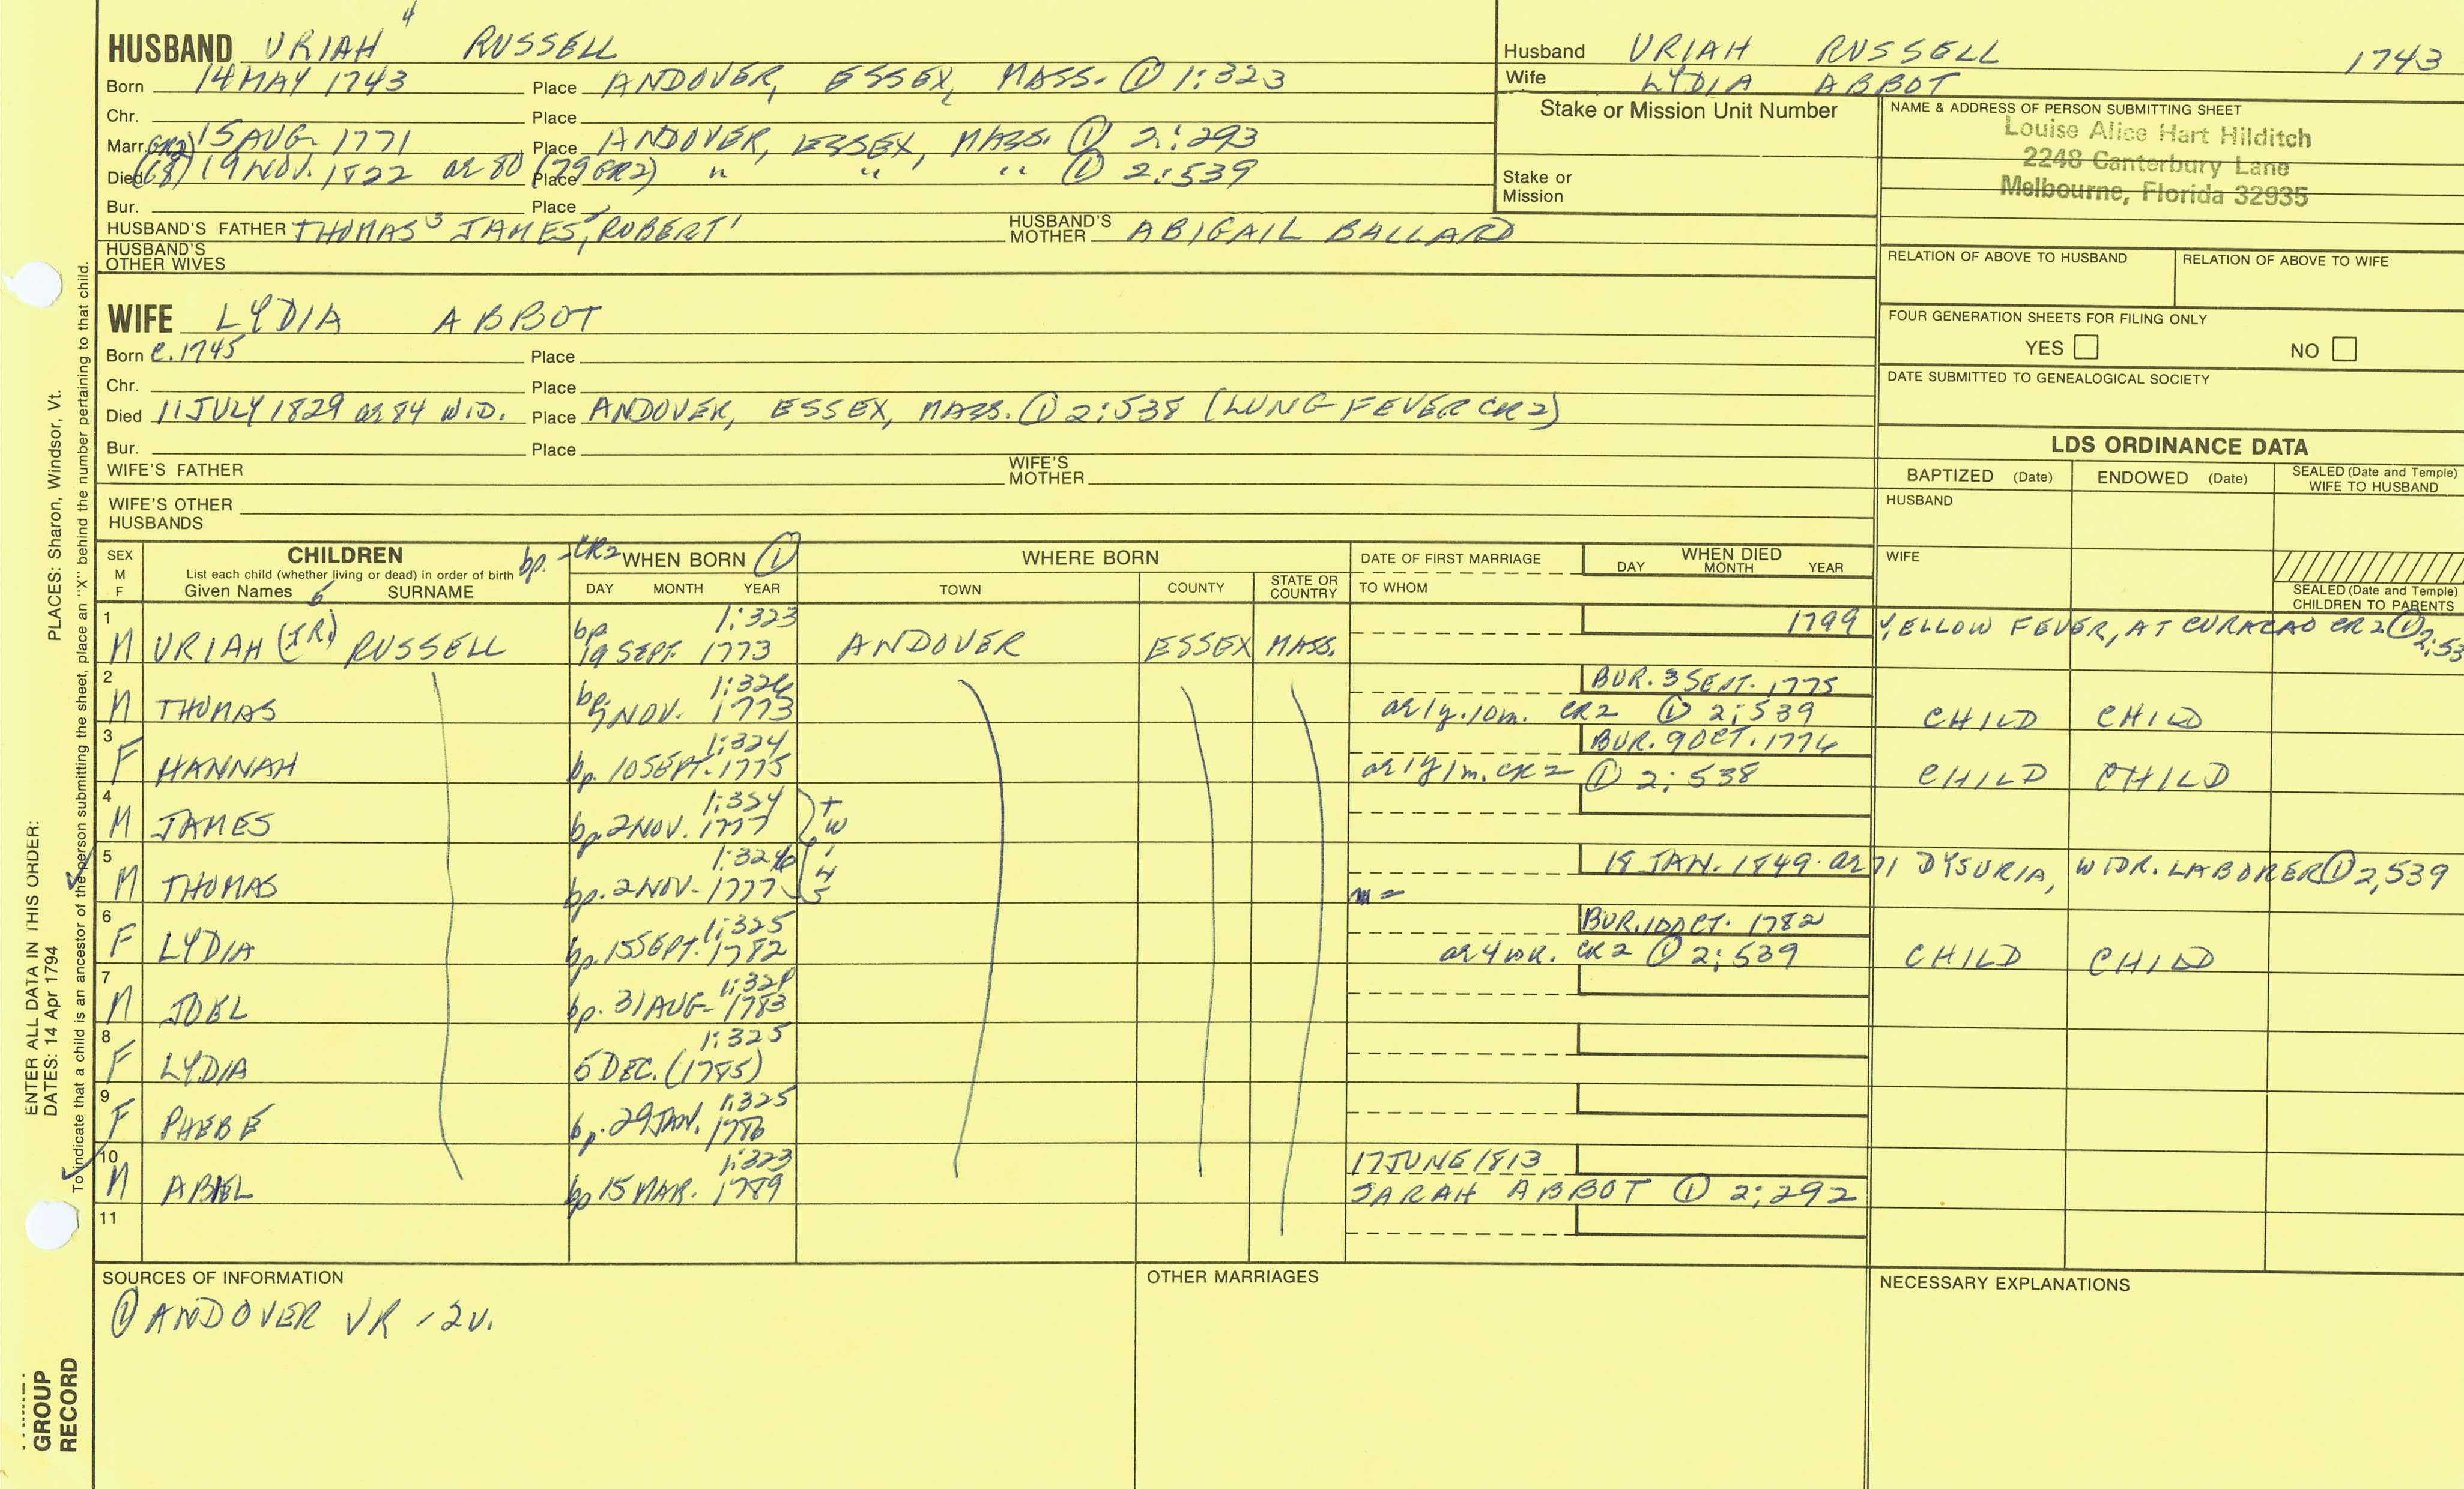 4
HUSBAND URIAH RUSSELL
Born 14 MAY 1743 Place ANDOVER, ESSEX, MASS. ① 1:323
Chr. Place
Marr. 15 AUG. 1771 Place ANDOVER, ESSEX, MASS. ① 2:293
Died 19 NOV. 1822 ae 80 (79 GR2) Place " " " ① 2:539
Bur. Place
HUSBAND'S FATHER THOMAS3 JAMES,2 ROBERT1 HUSBAND'S MOTHER ABIGAIL BALLARD
HUSBAND'S OTHER WIVES
WIFE LYDIA ABBOT
Born c.1745 Place
Chr. Place
Died 11 JULY 1829 ae 84 WID. Place ANDOVER, ESSEX, MASS. ① 2:538 (LUNG FEVER CR2)
Bur. Place
WIFE'S FATHER WIFE'S MOTHER
WIFE'S OTHER HUSBANDS
Husband URIAH RUSSELL 1743
Wife LYDIA ABBOT
Stake or Mission Unit Number
Stake or Mission
NAME & ADDRESS OF PERSON SUBMITTING SHEET
Louise Alice Hart Hilditch
2248 Canterbury Lane
Melbourne, Florida 32935
RELATION OF ABOVE TO HUSBAND RELATION OF ABOVE TO WIFE
FOUR GENERATION SHEETS FOR FILING ONLY
YES NO
DATE SUBMITTED TO GENEALOGICAL SOCIETY
LDS ORDINANCE DATA
BAPTIZED (Date) ENDOWED (Date) SEALED (Date and Temple) WIFE TO HUSBAND
HUSBAND
WIFE
SEALED (Date and Temple) CHILDREN TO PARENTS
SEX M F
CHILDREN
List each child (whether living or dead) in order of birth
Given Names SURNAME
bp. - CR2 WHEN BORN ①
DAY MONTH YEAR
WHERE BORN
TOWN COUNTY STATE OR COUNTRY
DATE OF FIRST MARRIAGE
TO WHOM
WHEN DIED
DAY MONTH YEAR
1 M URIAH (JR.) RUSSELL bp 19 SEPT. 1773 1:323 ANDOVER ESSEX MASS. 1799 YELLOW FEVER, AT CURACAO CR2 ① 2:53
2 M THOMAS bp. NOV. 1773 BUR. 3 SEPT. 1775
ae 1y. 10m. CR2 ① 2:539 CHILD CHILD
3 F HANNAH bp. 10 SEPT. 1775 1:324 BUR. 9 OCT. 1776
ae 1y 1m. CR2 ① 2:538 CHILD CHILD
4 M JAMES bp. 2 NOV. 1777 1:324
5 M THOMAS bp. 2 NOV. 1777 18 JAN. 1849. ae 71 DYSURIA, WIDR. LABORER ① 2,539
6 F LYDIA bp. 15 SEPT. 1782 1:325 BUR. 10 OCT. 1782
ae 4 wk. CR2 ① 2:539 CHILD CHILD
7 M JOEL bp. 31 AUG. 1783
8 F LYDIA 5 DEC. (1785) 1:325
9 F PHEBE bp. 29 JAN. 1786 1:325
10 M ABIEL bp 15 MAR. 1789 1:323 17 JUNE 1813
SARAH ABBOT ① 2:292
11
SOURCES OF INFORMATION
① ANDOVER VR - 2v.
OTHER MARRIAGES
NECESSARY EXPLANATIONS
ENTER ALL DATA IN THIS ORDER:
DATES: 14 Apr 1794 PLACES: Sharon, Windsor, Vt.
To indicate that a child is an ancestor of the person submitting the sheet, place an "X" behind the number pertaining to that child.
GROUP
RECORD